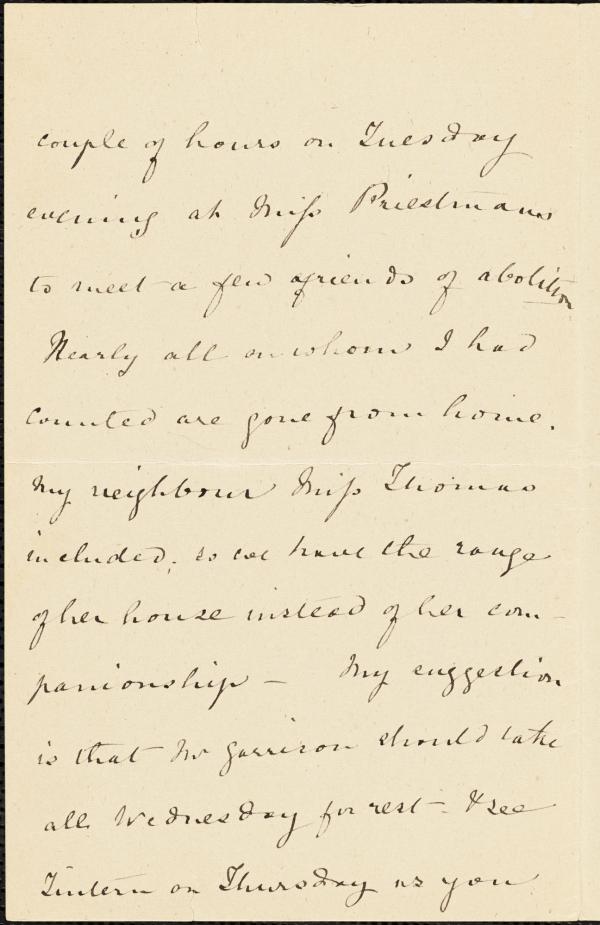 couple of hours on Tuesday
evening at Miss Priestmans
to meet a few friends of abolition
Nearly all on whom I had
counted are gone from home.
My neighbour Miss Thomas
included; so we have the range
of her house instead of her com-
panionship – My suggestion
is that Mr Garrison should take
all Wednesday for rest – & see
Tintern on Thursday as you